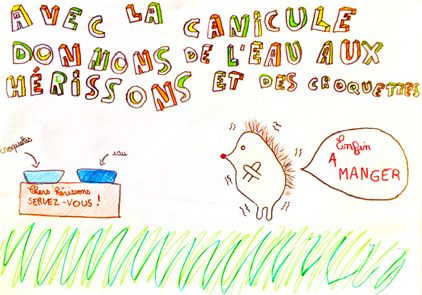 AVEC LA CANICULE
DONNONS DE L'EAU AUX
HÉRISSONS ET DES CROQUETTES
croquettes
eau
Chers hérissons
SERVEZ-VOUS !
Enfin
A
MANGER